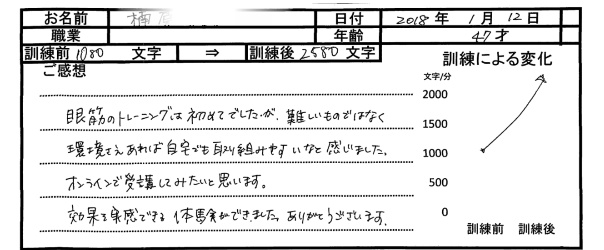 お名前 日付 2018 年 1 月 12 日
職業 年齢 47才
訓練前 1080 文字 ⇒ 訓練後 2580 文字 訓練による変化
ご感想
文字/分
2000
1500
1000
500
0
訓練前 訓練後
眼筋のトレーニングは初めてでしたが、難しいものではなく
環境さえあれば自宅でも取り組みやすいなと感じました。
オンラインで受講してみたいと思います。
効果を実感できる体験ができました。ありがとうございます。